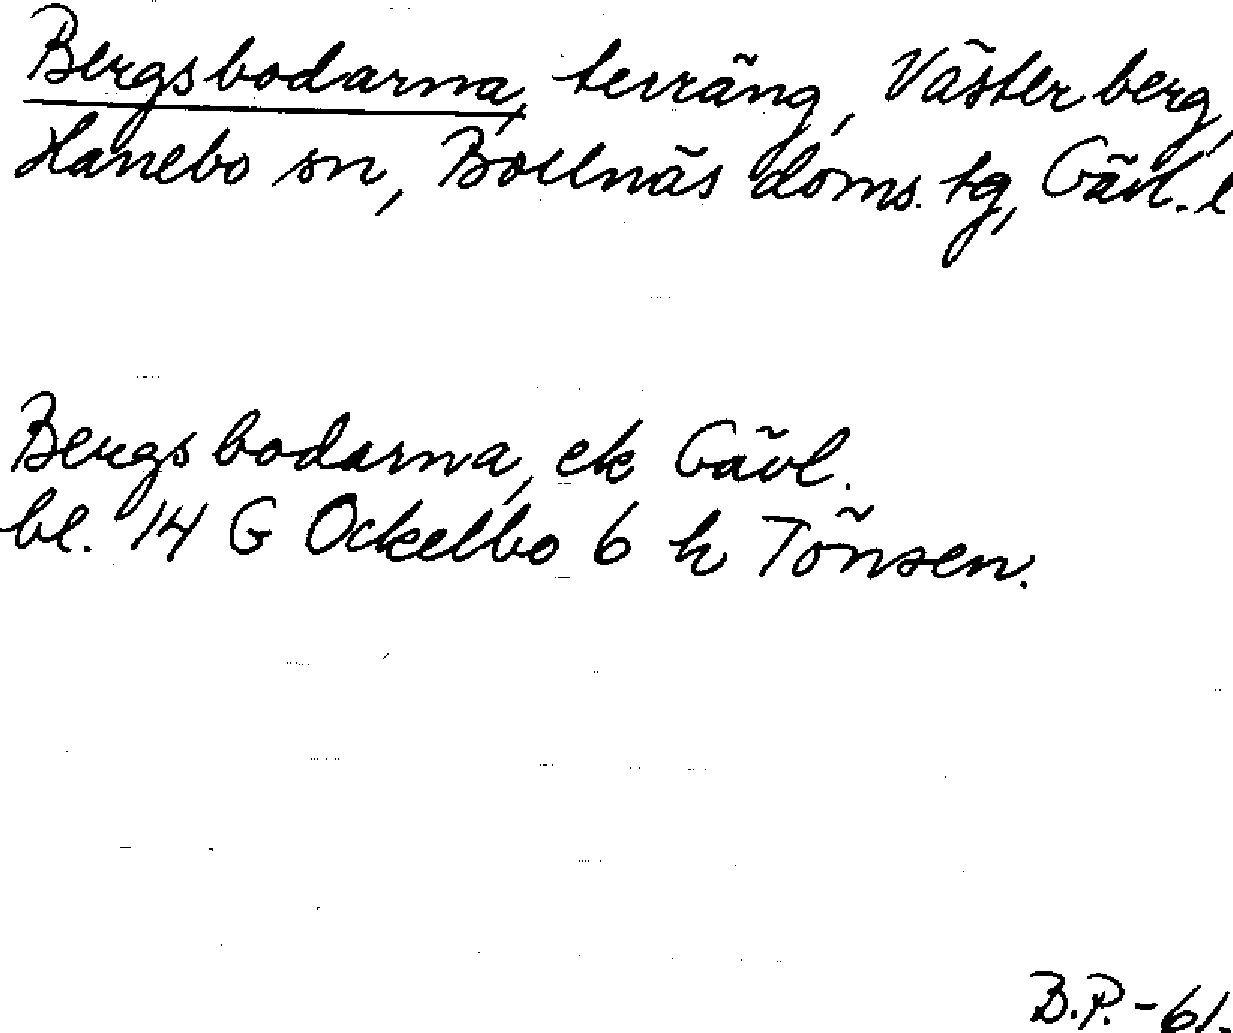 Bergsbodarna, terräng, Västerberg,
Hanebo sn, Bollnäs doms. tg, Gävl. l
Bergsbodarna, ek Gävl.
bl. 14 G Ockelbo 6 h Tönsen.
B.P.-61.